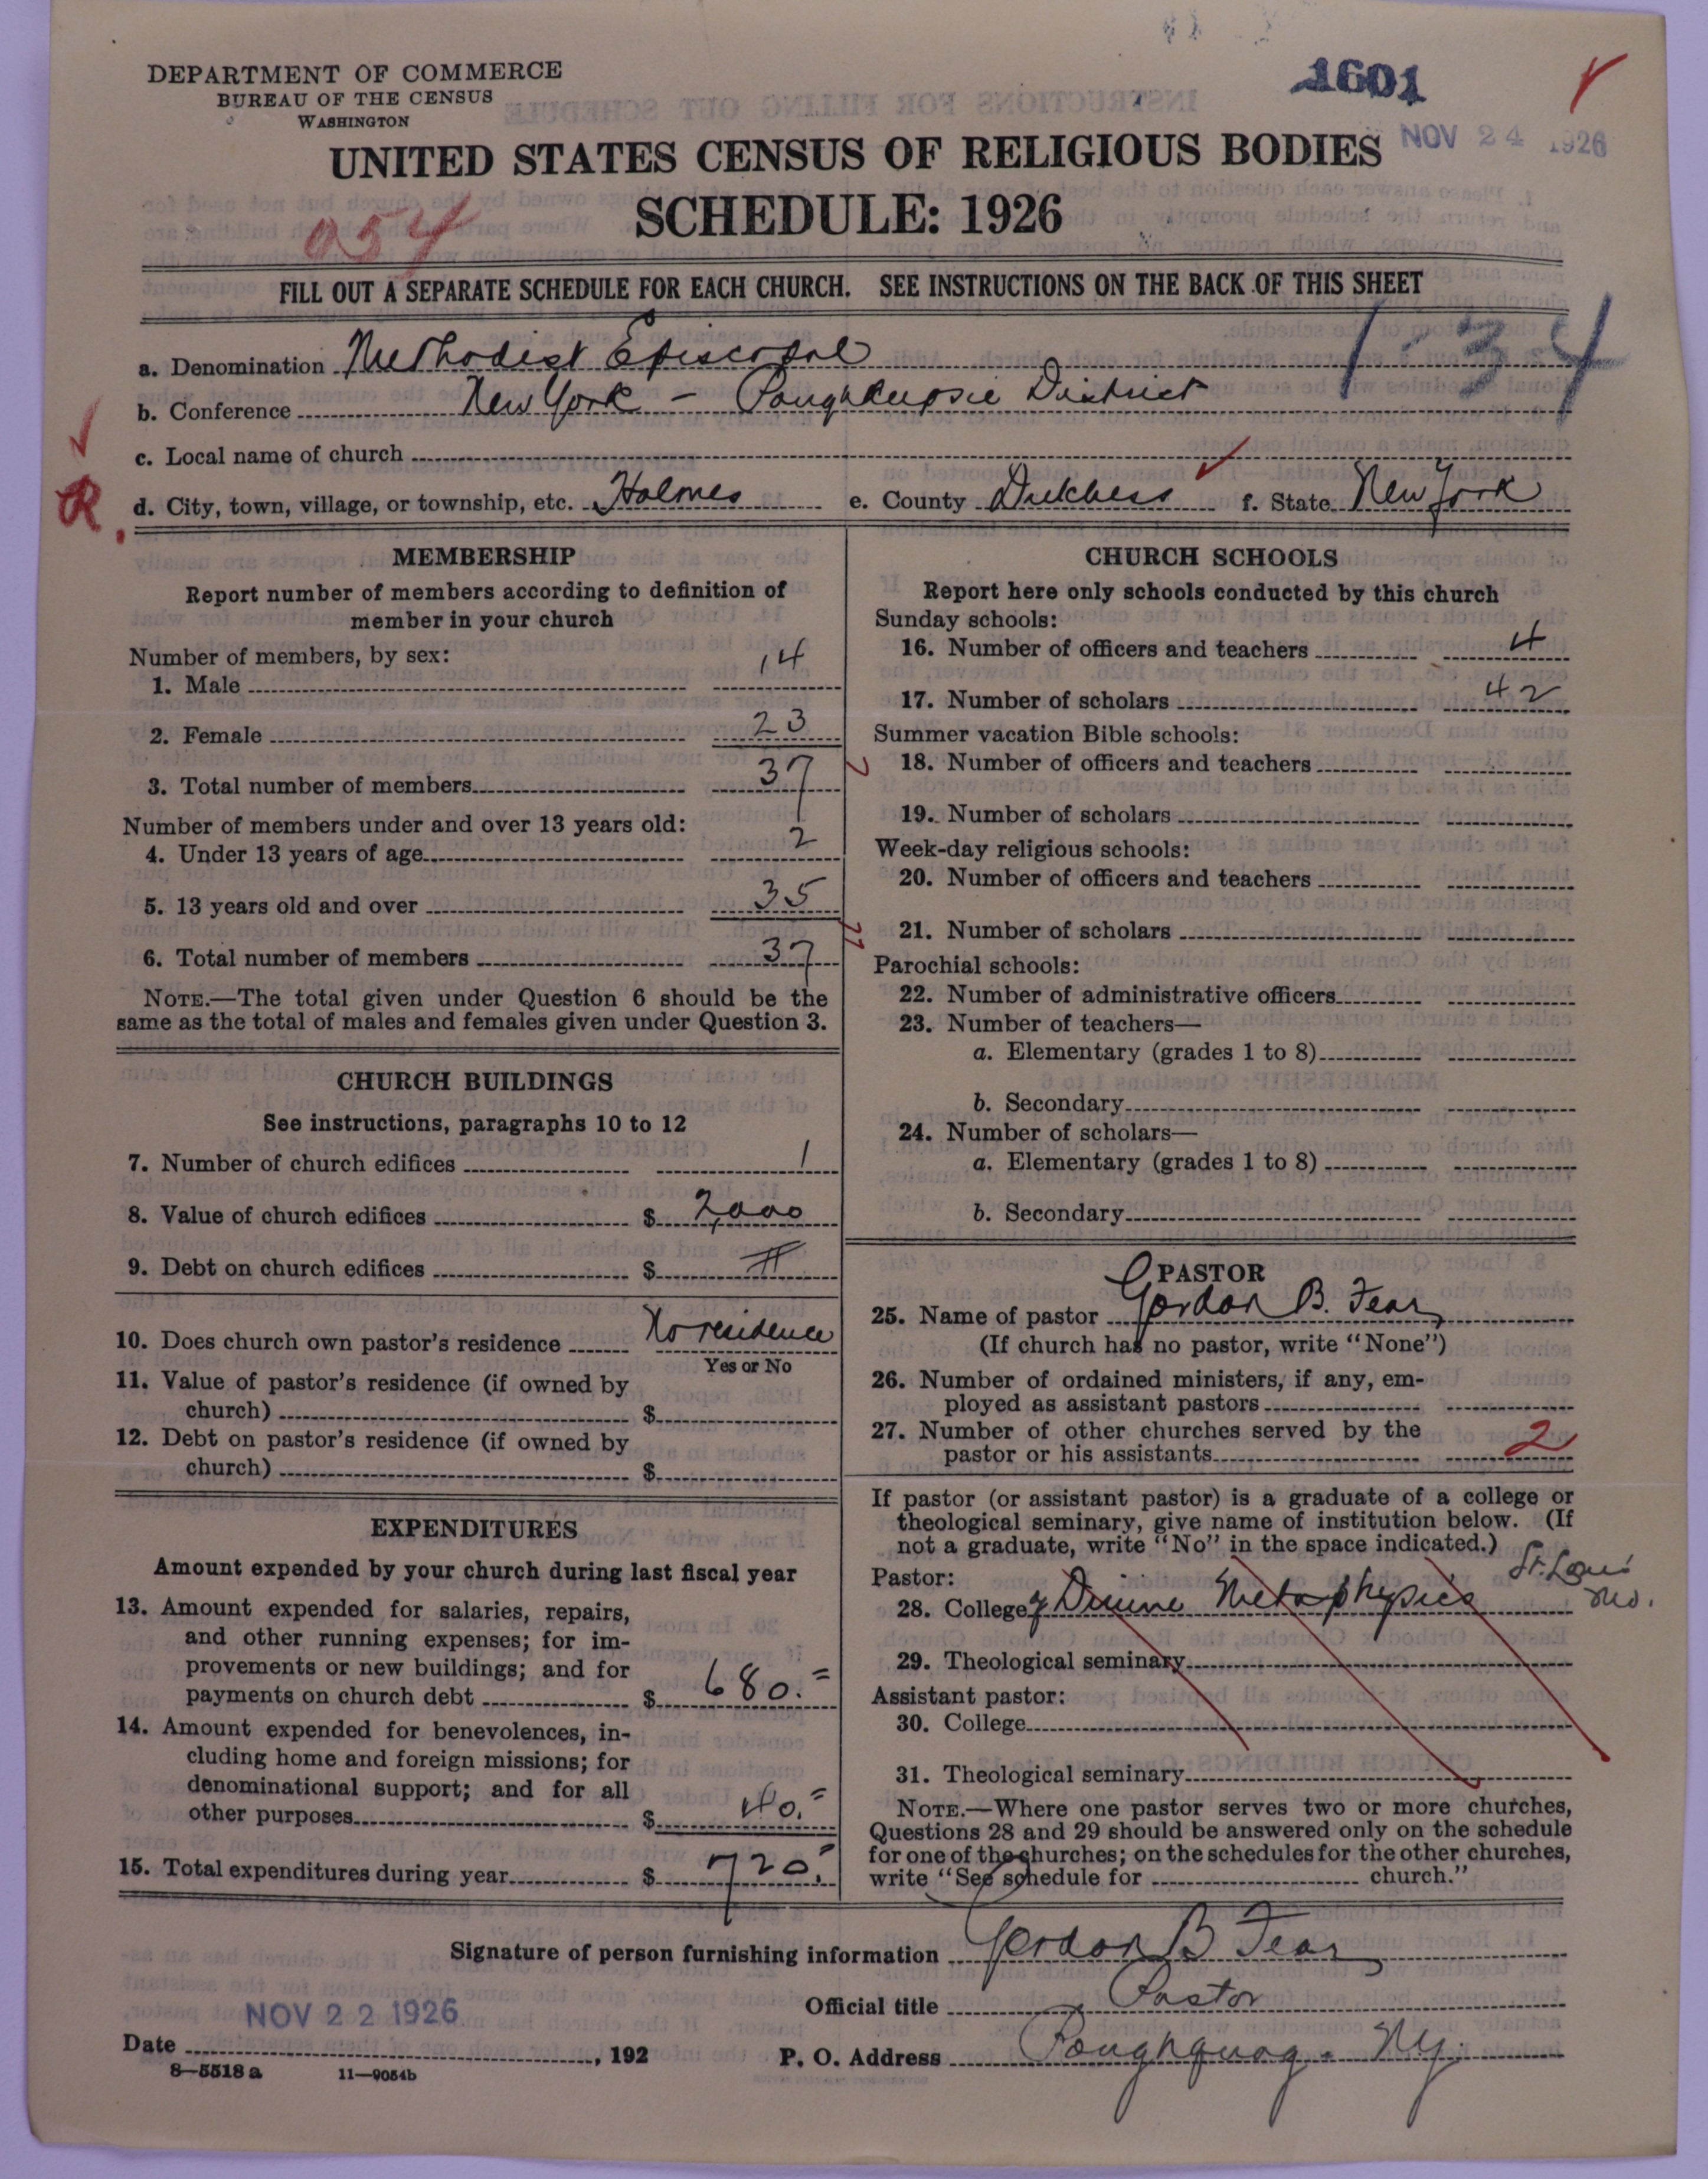 DEPARTMENT OF COMMERCE
BUREAU OF THE CENSUS
WASHINGTON
1601
NOV 24 1926
UNITED STATES CENSUS OF RELIGIOUS BODIES
SCHEDULE: 1926
054
FILL OUT A SEPARATE SCHEDULE FOR EACH CHURCH. SEE INSTRUCTIONS ON THE BACK OF THIS SHEET
1-34
a. Denomination Methodist Episcopal
b. Conference New York - Poughkeepsie District
c. Local name of church
R.
d. City, town, village, or township, etc. Holmes e. County Dutchess f. State New York
MEMBERSHIP
Report number of members according to definition of
member in your church
Number of members, by sex:
1. Male 14
2. Female 23
3. Total number of members 37
Number of members under and over 13 years old:
4. Under 13 years of age 2
5. 13 years old and over 35
6. Total number of members 37
NOTE.—The total given under Question 6 should be the
same as the total of males and females given under Question 3.
CHURCH BUILDINGS
See instructions, paragraphs 10 to 12
7. Number of church edifices 1
8. Value of church edifices $ 2,000
9. Debt on church edifices $
10. Does church own pastor's residence No residence
Yes or No
11. Value of pastor's residence (if owned by
church) $
12. Debt on pastor's residence (if owned by
church) $
EXPENDITURES
Amount expended by your church during last fiscal year
13. Amount expended for salaries, repairs,
and other running expenses; for im-
provements or new buildings; and for
payments on church debt $ 680.=
14. Amount expended for benevolences, in-
cluding home and foreign missions; for
denominational support; and for all
other purposes $ 40.=
15. Total expenditures during year $ 720.=
CHURCH SCHOOLS
Report here only schools conducted by this church
Sunday schools:
16. Number of officers and teachers 4
17. Number of scholars 42
Summer vacation Bible schools:
18. Number of officers and teachers
19. Number of scholars
Week-day religious schools:
20. Number of officers and teachers
21. Number of scholars
Parochial schools:
22. Number of administrative officers
23. Number of teachers—
a. Elementary (grades 1 to 8)
b. Secondary
24. Number of scholars—
a. Elementary (grades 1 to 8)
b. Secondary
PASTOR
25. Name of pastor Gordon B. Fear
(If church has no pastor, write "None")
26. Number of ordained ministers, if any, em-
ployed as assistant pastors
27. Number of other churches served by the
pastor or his assistants 2
If pastor (or assistant pastor) is a graduate of a college or
theological seminary, give name of institution below. (If
not a graduate, write "No" in the space indicated.)
Pastor:
28. College of Divine Metaphysics St. Louis Mo.
29. Theological seminary
Assistant pastor:
30. College
31. Theological seminary
NOTE.—Where one pastor serves two or more churches,
Questions 28 and 29 should be answered only on the schedule
for one of the churches; on the schedules for the other churches,
write "See schedule for church."
Signature of person furnishing information Gordon B Fear
Official title Pastor
NOV 22 1926
Date , 192
P. O. Address Poughquag. NY.
8—5518 a 11—9054b